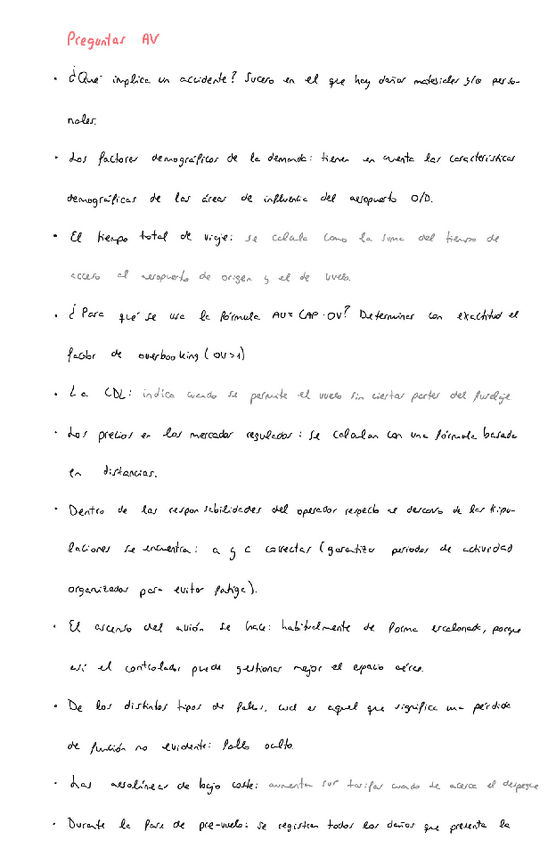 Preguntas AV
• ¿Qué implica un accidente? Suceso en el que hay daños materiales y/o perso-
nales.
• Los factores demográficos de la demanda: tienen en cuenta las características
demográficas de las áreas de influencia del aeropuerto O/D.
• El tiempo total de viaje: se calcula como la suma del tiempo de
acceso al aeropuerto de origen y el de vuelo.
• ¿Para qué se usa la fórmula AU= CAP·OV? Determinar con exactitud el
factor de overbooking (OV>1)
• La CDL: indica cuando se permite el vuelo sin ciertas partes del fuselaje
• Los precios en los mercados regulados: se calculan con una fórmula basada
en distancias.
• Dentro de las responsabilidades del operador respecto al descanso de las tripu-
laciones se encuentra: a y c correctas (garantiza periodos de actividad
organizados para evitar fatiga).
• El ascenso del avión se hace: habitualmente de forma escalonada, porque
así el controlador puede gestionar mejor el espacio aéreo.
• De los distintos tipos de fallos, cual es aquel que significa una pérdida
de función no evidente: fallo oculto.
• Las aerolíneas de bajo coste: aumentan sus tarifas cuando se acerca el despegue
• Durante la fase de pre-vuelo: se registran todos los daños que presenta la